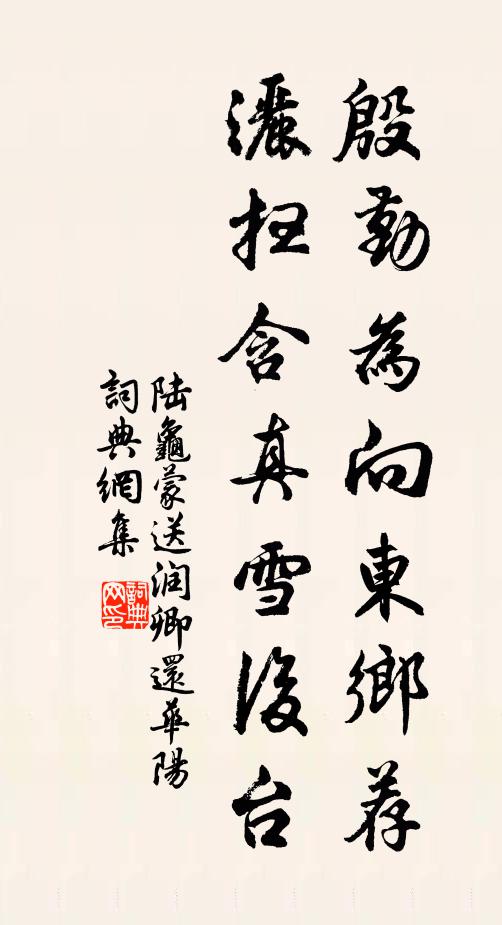 殷勤為向東鄉荐
灑扫含真雪後台
陆龜蒙送润卿還華陽
詞典網集
詞典网印